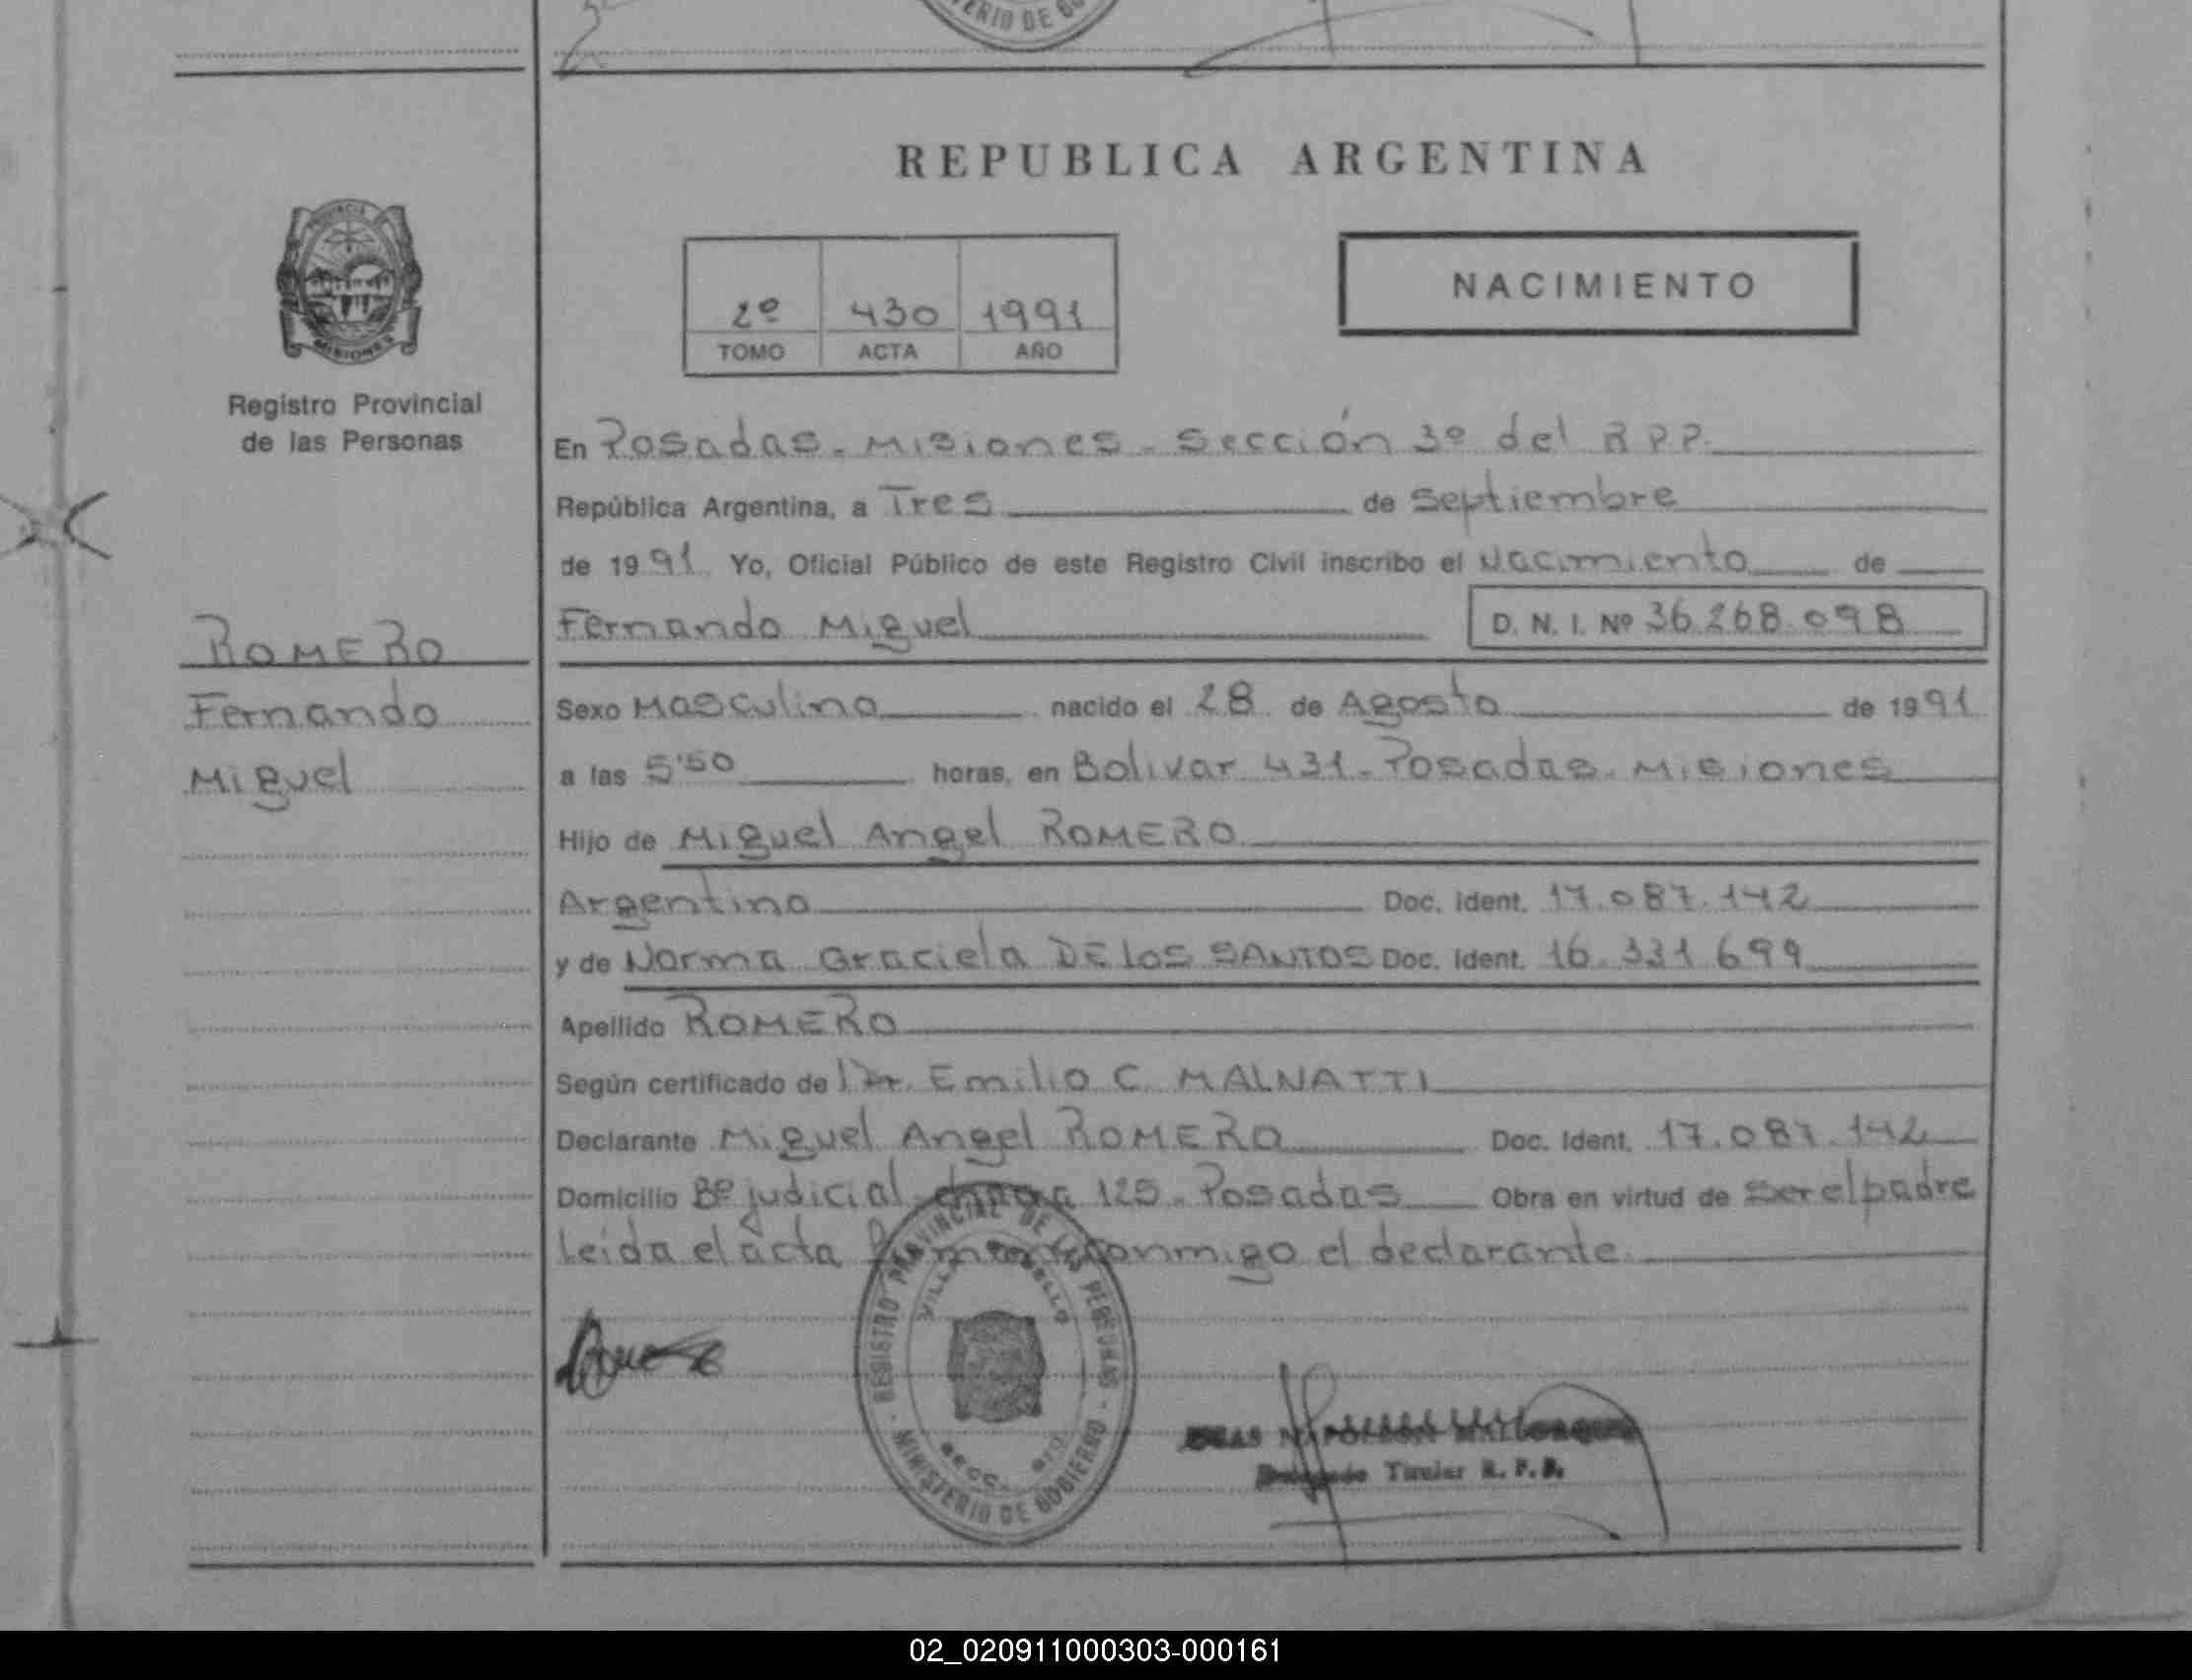 MINISTERIO DE GO
REPUBLICA ARGENTINA
PROVINCIA DE
MISIONES
Registro Provincial
de las Personas
2º 430 1991
TOMO ACTA AÑO
NACIMIENTO
En Posadas - Misiones - Sección 3º del R.P.P.
República Argentina, a Tres de Septiembre
de 1991 Yo, Oficial Público de este Registro Civil inscribo el Nacimiento de
Fernando Miguel D. N. I. Nº 36.268.098
ROMERO
Fernando
Miguel
Sexo Masculino nacido el 28 de Agosto de 1991
a las 5'50 horas, en Bolivar 431 - Posadas - Misiones
Hijo de Miguel Angel ROMERO
Argentino Doc. Ident. 17.087.142
y de Norma Graciela DE LOS SANTOS Doc. Ident. 16.331.699
Apellido ROMERO
Según certificado del Dr. Emilio C. MALNATTI
Declarante Miguel Angel ROMERO Doc. Ident. 17.087.142
Domicilio Bº judicial 125 - Posadas Obra en virtud de ser el padre
Leída el acta conmigo el declarante
REGISTRO PROVINCIAL DE LAS PERSONAS
VILLA
SECC.
MINISTERIO DE GOBIERNO
Titular R. P. P.
02_020911000303-000161